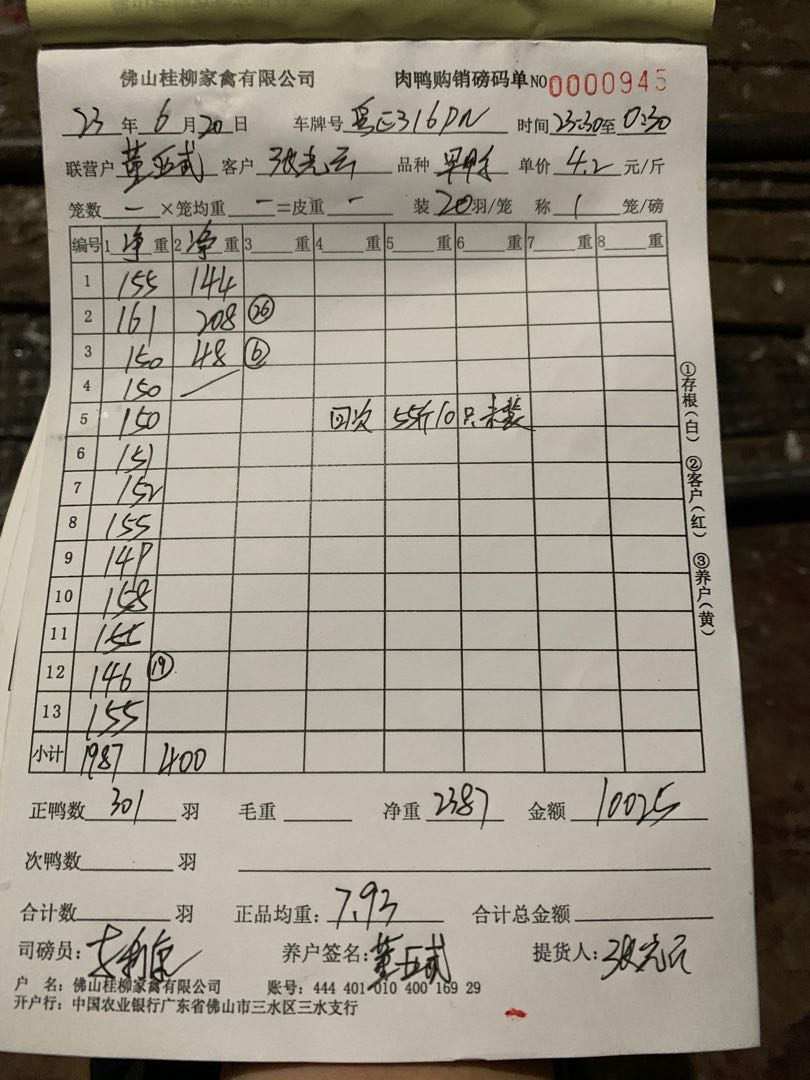 佛山桂柳家禽有限公司 肉鸭购销磅码单 NO 0000945
23 年 6 月 20 日 车牌号 316DN 时间 23:30 至 0:30
联营户 董亚武 客户 张光云 品种 单价 4.2 元/斤
笼数 一 ×笼均重 一 =皮重 一 装 20 羽/笼 称 1 笼/磅
编号 1 净 重 2 净 重 3 重 4 重 5 重 6 重 7 重 8 重
1 155 144
2 161 208 26
3 150 48 6
4 150
5 150 回次 55斤10只未装
6 151
7 152
8 155
9 149
10 158
11 155
12 146 19
13 155
小计 1987 400
正鸭数 301 羽 毛重 净重 2387 金额 10025
次鸭数 羽
合计数 羽 正品均重: 7.93 合计总金额
司磅员: 养户签名: 董亚武 提货人: 张光云
户 名: 佛山桂柳家禽有限公司 账号: 444 401 010 400 169 29
开户行: 中国农业银行广东省佛山市三水区三水支行
①存根(白) ②客户(红) ③养户(黄)